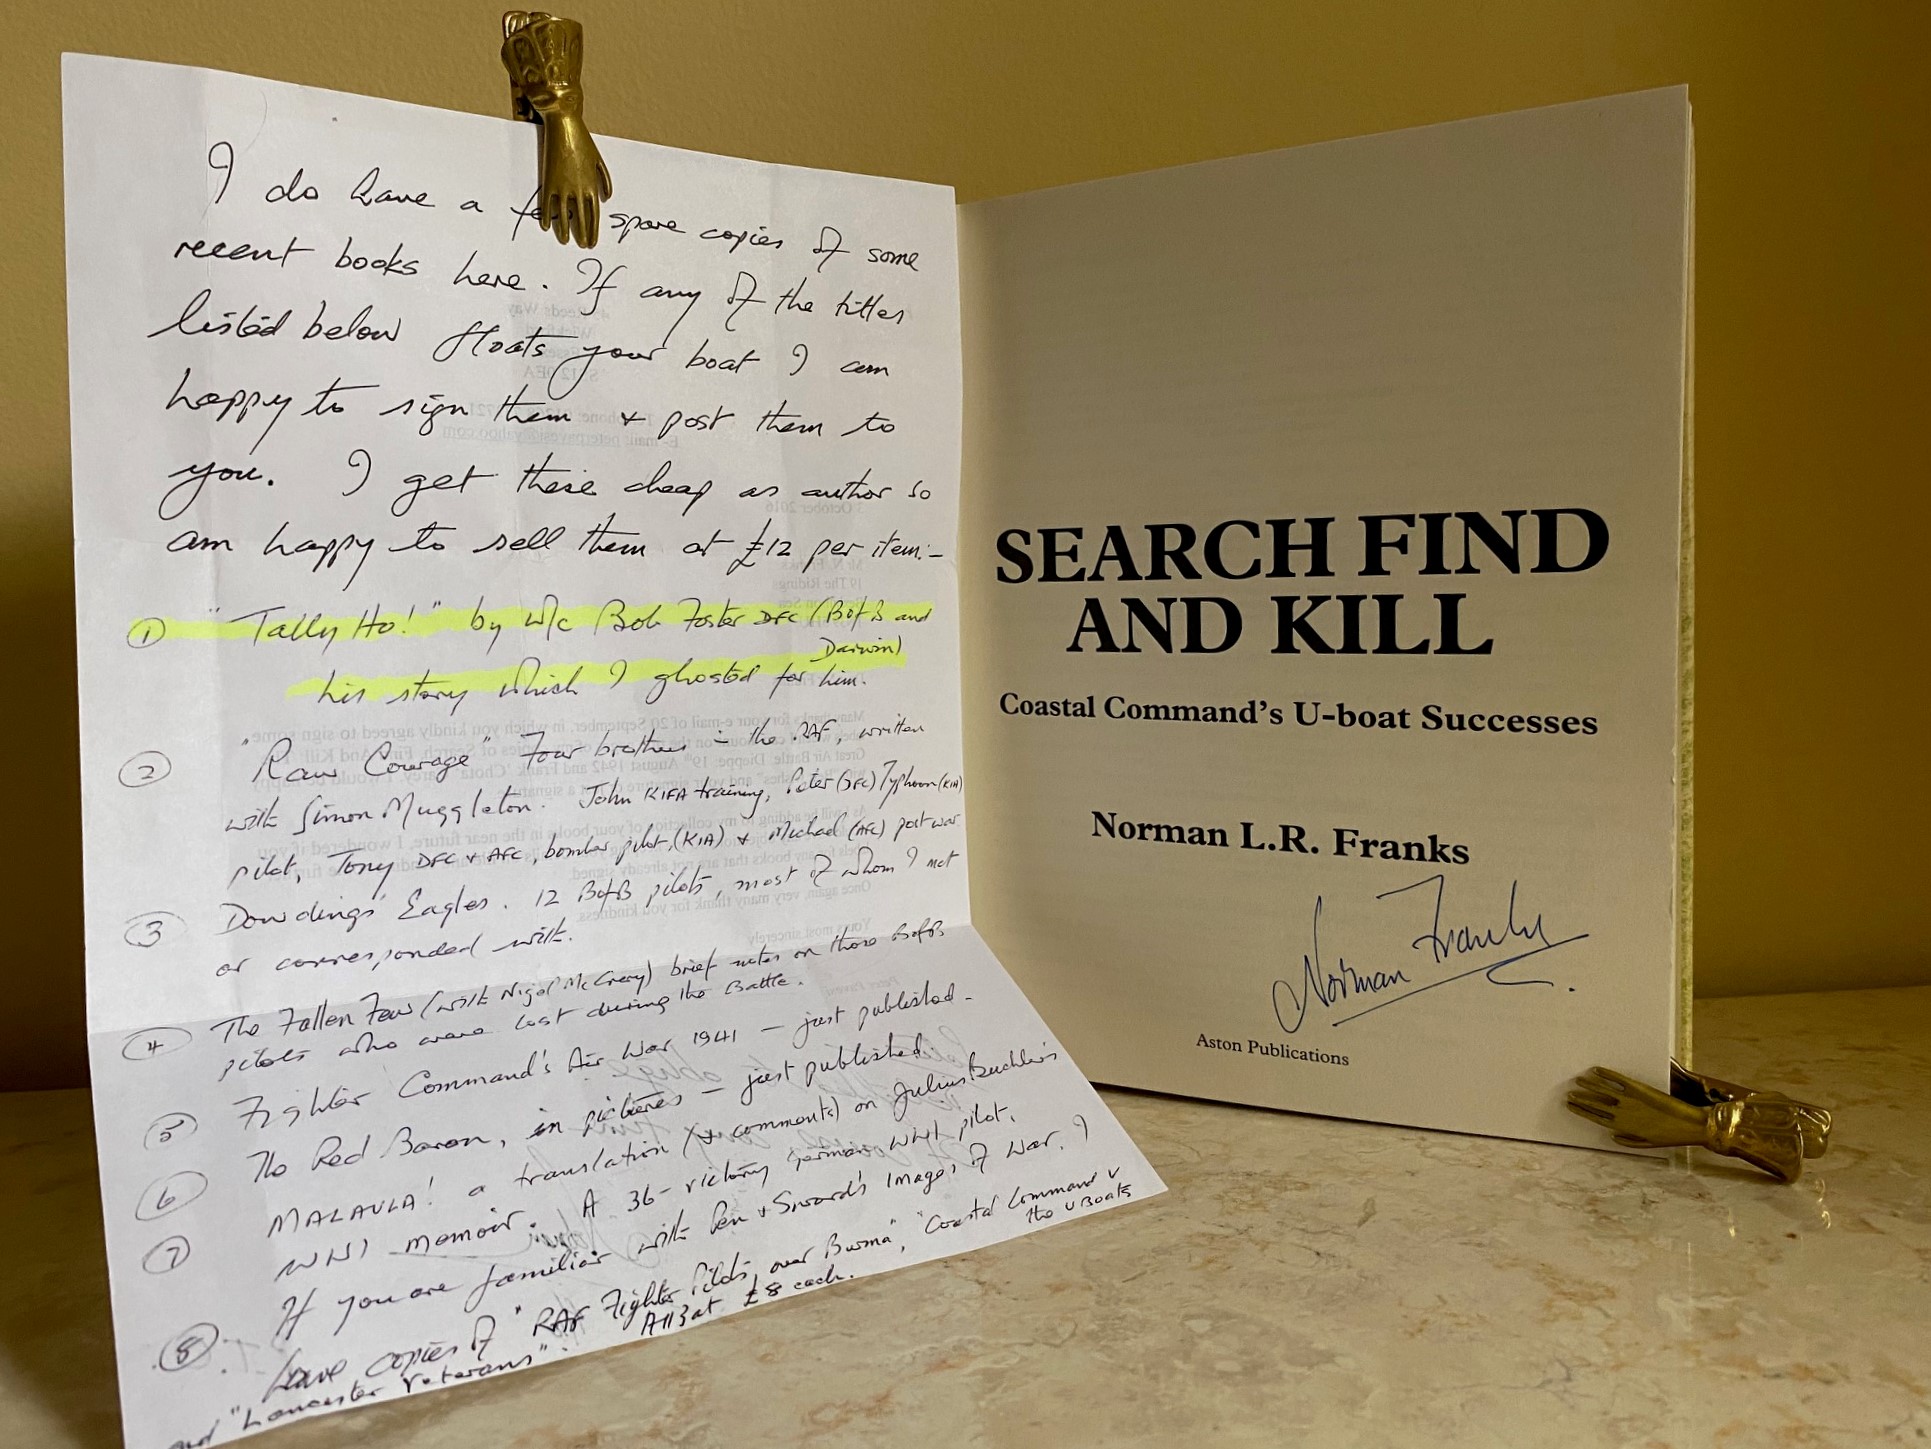 I do have a few spare copies of some
recent books here. If any of the titles
listed below floats your boat I am
happy to sign them & post them to
you. I get these cheap as author so
am happy to sell them at £12 per item:-
① "Tally Ho!" by W/C Bob Foster DFC (BofB and
Darwin)
his story which I ghosted for him.
② "Raw Courage" Four brothers in the RAF, written
with Simon Muggleton. John KIFA training, Peter (DFC) Typhoon (KIA)
pilot, Tony DFC & AFC, bomber pilot, (KIA) & Michael (AFC) post war
③ Dowdings' Eagles. 12 BofB pilots, most of whom I met
or corresponded with.
④ The Fallen Few (with Nigel McCrery) brief notes on those BofB
pilots who were lost during the Battle.
⑤ Fighter Command's Air War 1941 – just published –
⑥ The Red Baron, in pictures – just published.
⑦ MALAULA! a translation (& comments) on Julius Buckler's
WW1 memoir. A 36-victory German WW1 pilot.
⑧ If you are familiar with Pen & Sword's Images of War. I
have copies of "RAF Fighter Pilots over Burma", "Coastal Command v
the U Boats
and "Lancaster Veterans". All 3 at £8 each.
SEARCH FIND
AND KILL
Coastal Command's U-boat Successes
Norman L.R. Franks
Norman Franks
Aston Publications